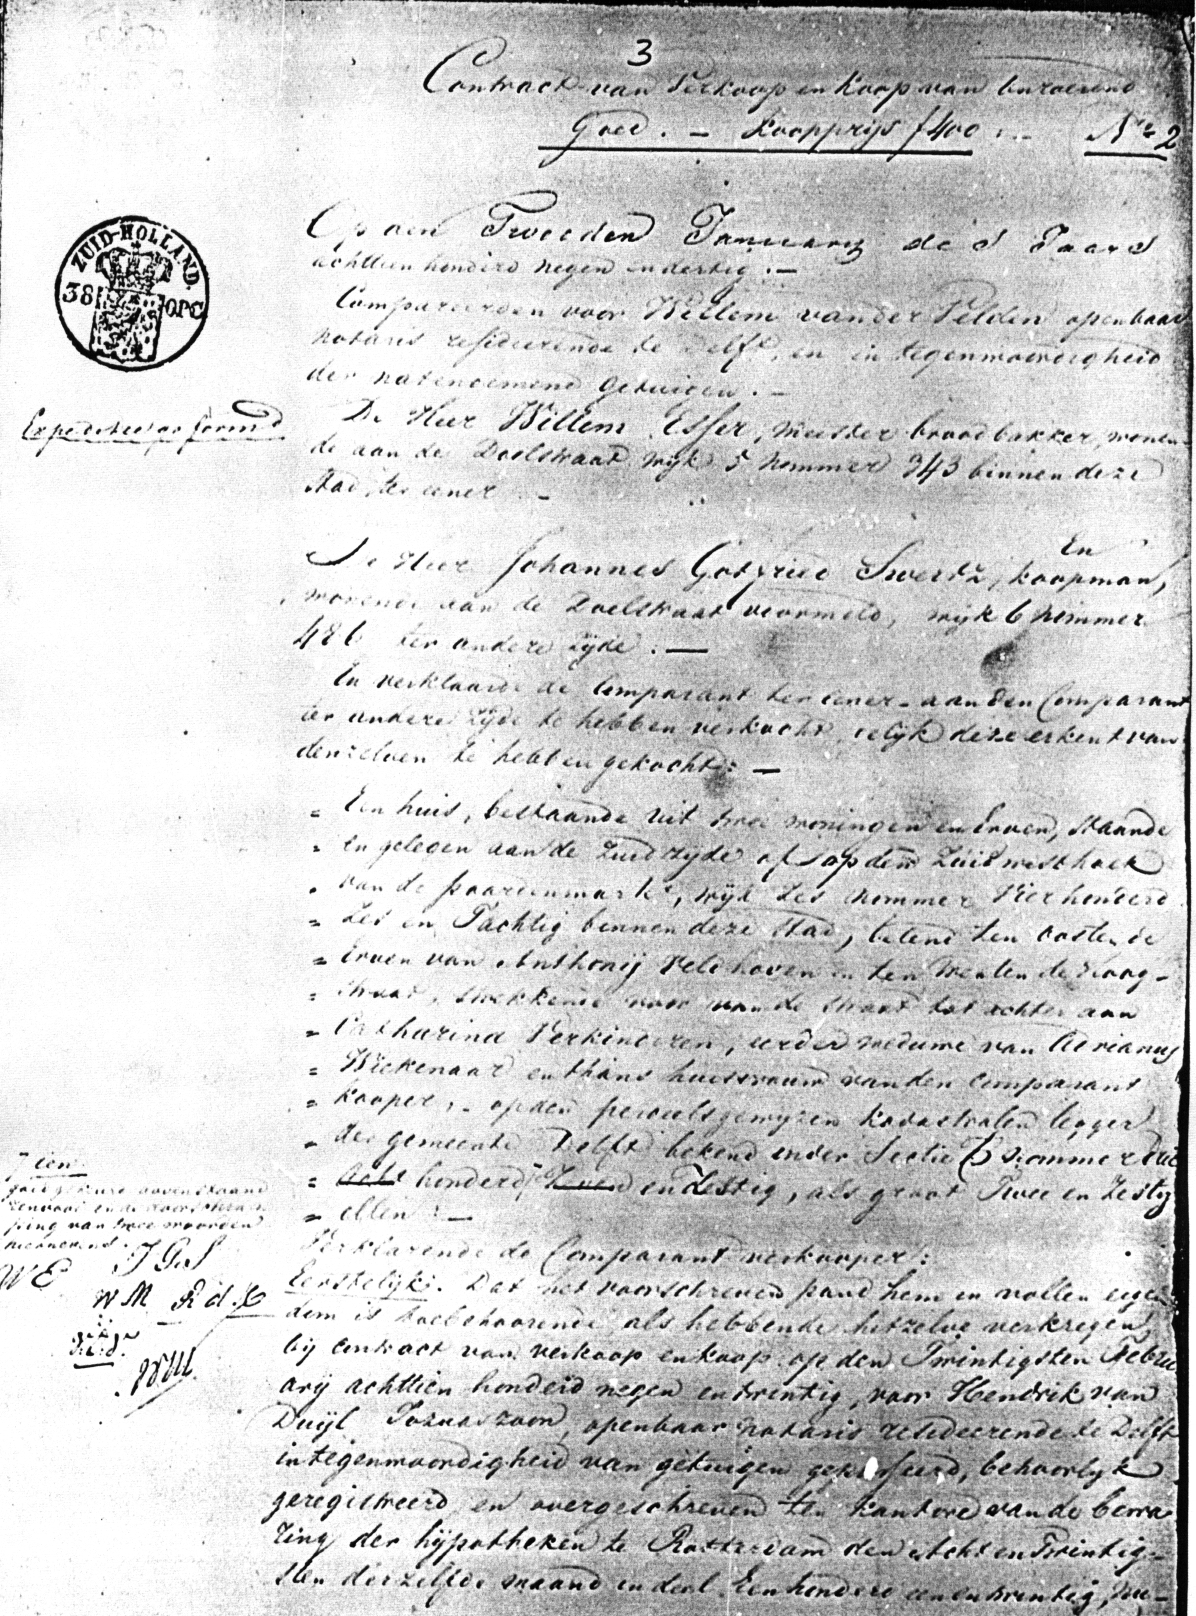 3
Contract van Verkoop en Koop van onroerend
Goed. - Koopprijs f 400. - No 2
ZUID-HOLLAND.
38 OPC
Op den Tweeden Januarij des Jaars
achttien honderd negen en dertig. -
Compareerden voor Willem van der Velden openbaar
notaris resideerende te Delft, en in tegenwoordigheid
der natenoemene getuigen. -
Expeditie
De Heer Willem Esser, meester broodbakker, wonen-
de aan de Doelstraat wijk 5 nommer 343 binnen deze
stad, ter eener -
En
De Heer Johannes Gotfried Swertz, koopman,
wonende aan de Doelstraat voormeld, wijk 6 nommer
486 ter andere zijde. -
En verklaarde de Comparant ter eener - aan den Comparant
ter andere zijde te hebben verkocht, gelijk deze erkent van
denzelven te hebben gekocht: -
" Een huis, bestaande uit twee woningen en Erven, staande
" en gelegen aan de Zuidzijde of op den Zuidwesthoek
" van de paardenmarkt, wijk zes nommer Vierhonderd
" Zes en Tachtig binnen deze stad, belend ten oosten de
" Erven van Anthonij Veldhoven en ten Westen de Hoog-
" straat, strekkende voor van de straat tot achter aan
" Catharina Verkinderen, eerder weduwe van Adrianus
" Wickenaar en thans huisvrouw van den comparant
" kooper, - op den perceelsgewijzen kadastralen legger
" der gemeente Delft bekend onder Sectie nommer
" acht honderd en Zestig, als groot Twee en Zestig
" ellen: -
Goedgekeurd bovenstaand
renvooi en de doorschrap-
ping van twee woorden
hiernevens.
WE JGS
WM R d. C
WM.
Verklarende de Comparant verkooper:
Eerstelijk: Dat het voorschreven pand hem in vollen eigen
dom is toebehoorende als hebbende hetzelve verkregen
bij contract van verkoop en koop op den Twintigsten Febru
arij achttien honderd negen en twintig, voor Hendrik van
Duijl Jozuaszoon, openbaar notaris resideerende te Delft
in tegenwoordigheid van getuigen gepasseerd, behoorlijk
geregistreerd en overgeschreven ten kantore van de bewa
ring der hijpotheken te Rotterdam den Acht en Twintig-
sten derzelfde maand in deel Een honderd een en twintig, nu-